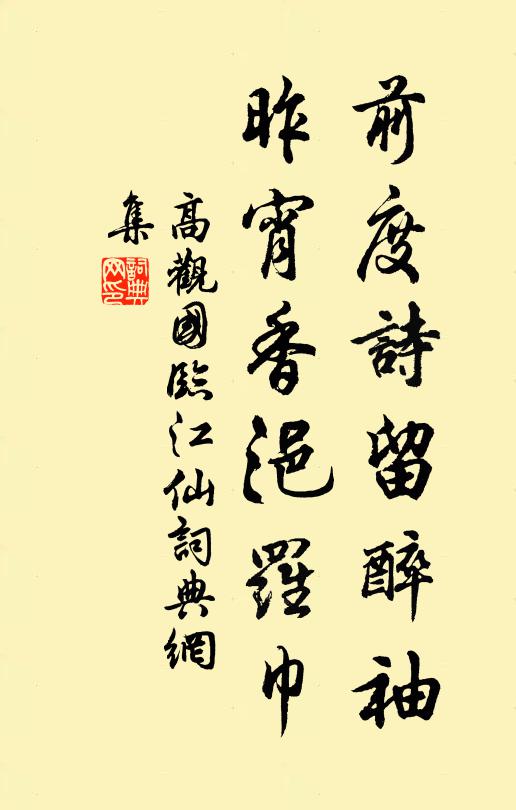 前度詩留醉袖
昨宵香浥羅巾
高觀國臨江仙詞典網
集
詞典
网印